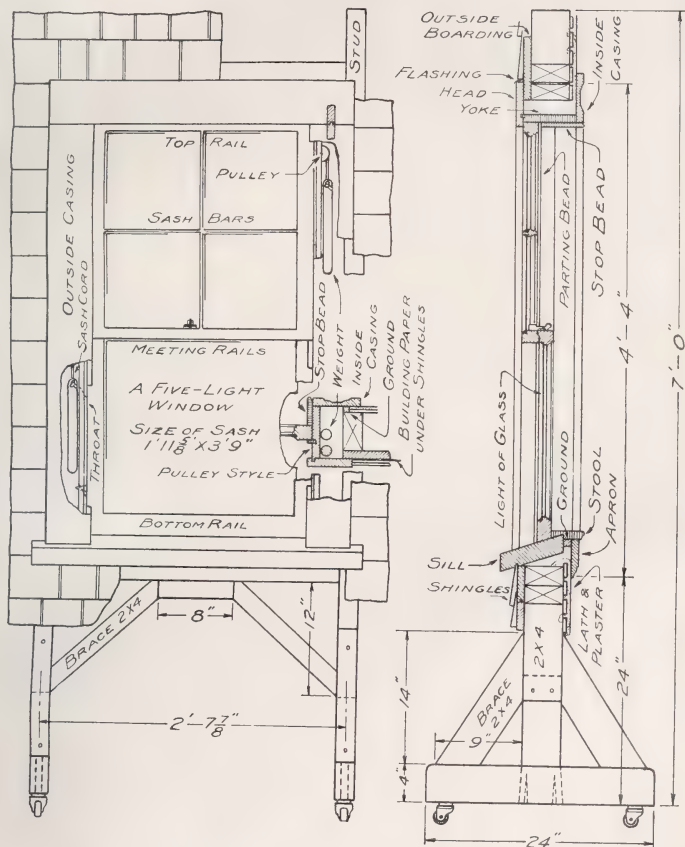 STUD
OUTSIDE CASING
SASH CORD
THROAT
TOP RAIL
PULLEY
SASH BARS
MEETING RAILS
A FIVE-LIGHT
WINDOW
SIZE OF SASH
1' 11 5/8" X 3' 9"
PULLEY STYLE
BOTTOM RAIL
STOP BEAD
WEIGHT
INSIDE
CASING
GROUND
BUILDING PAPER
UNDER SHINGLES
BRACE 2X4
8"
12"
2'-7 7/8"
OUTSIDE
BOARDING
FLASHING
HEAD
YOKE
INSIDE
CASING
PARTING BEAD
STOP BEAD
4'-4"
7'-0"
LIGHT OF GLASS
GROUND
STOOL
APRON
SILL
SHINGLES
LATH &
PLASTER
2X4
BRACE
2X4
14"
9"
4"
24"
24"